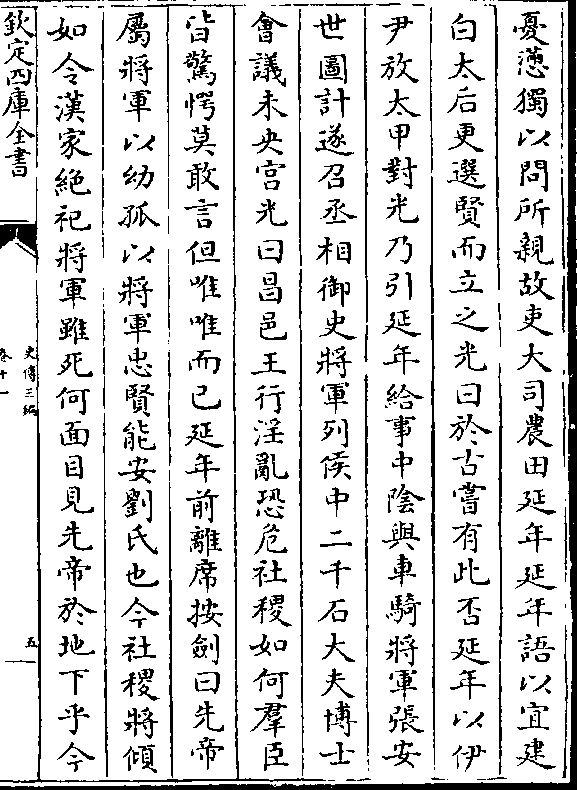 憂懣獨以問所親故吏大司農田延年延年語以宜建
白太后更選賢而立之光曰於古嘗有此否延年以伊
尹放太甲對光乃引延年給事中陰與車騎將軍張安
世圖計遂召丞相御史將軍列侯中二千石大夫博士
會議未央宮光曰昌邑王行淫亂恐危社稷如何羣臣
皆驚愕莫敢言但唯唯而已延年前離席按劍曰先帝
屬將軍以幼孤以將軍忠賢能安劉氏也今社稷將傾
如令漢家絕祀將軍雖死何面目見先帝於地下乎今
欽定四庫全書
史傳三編
卷十一
五